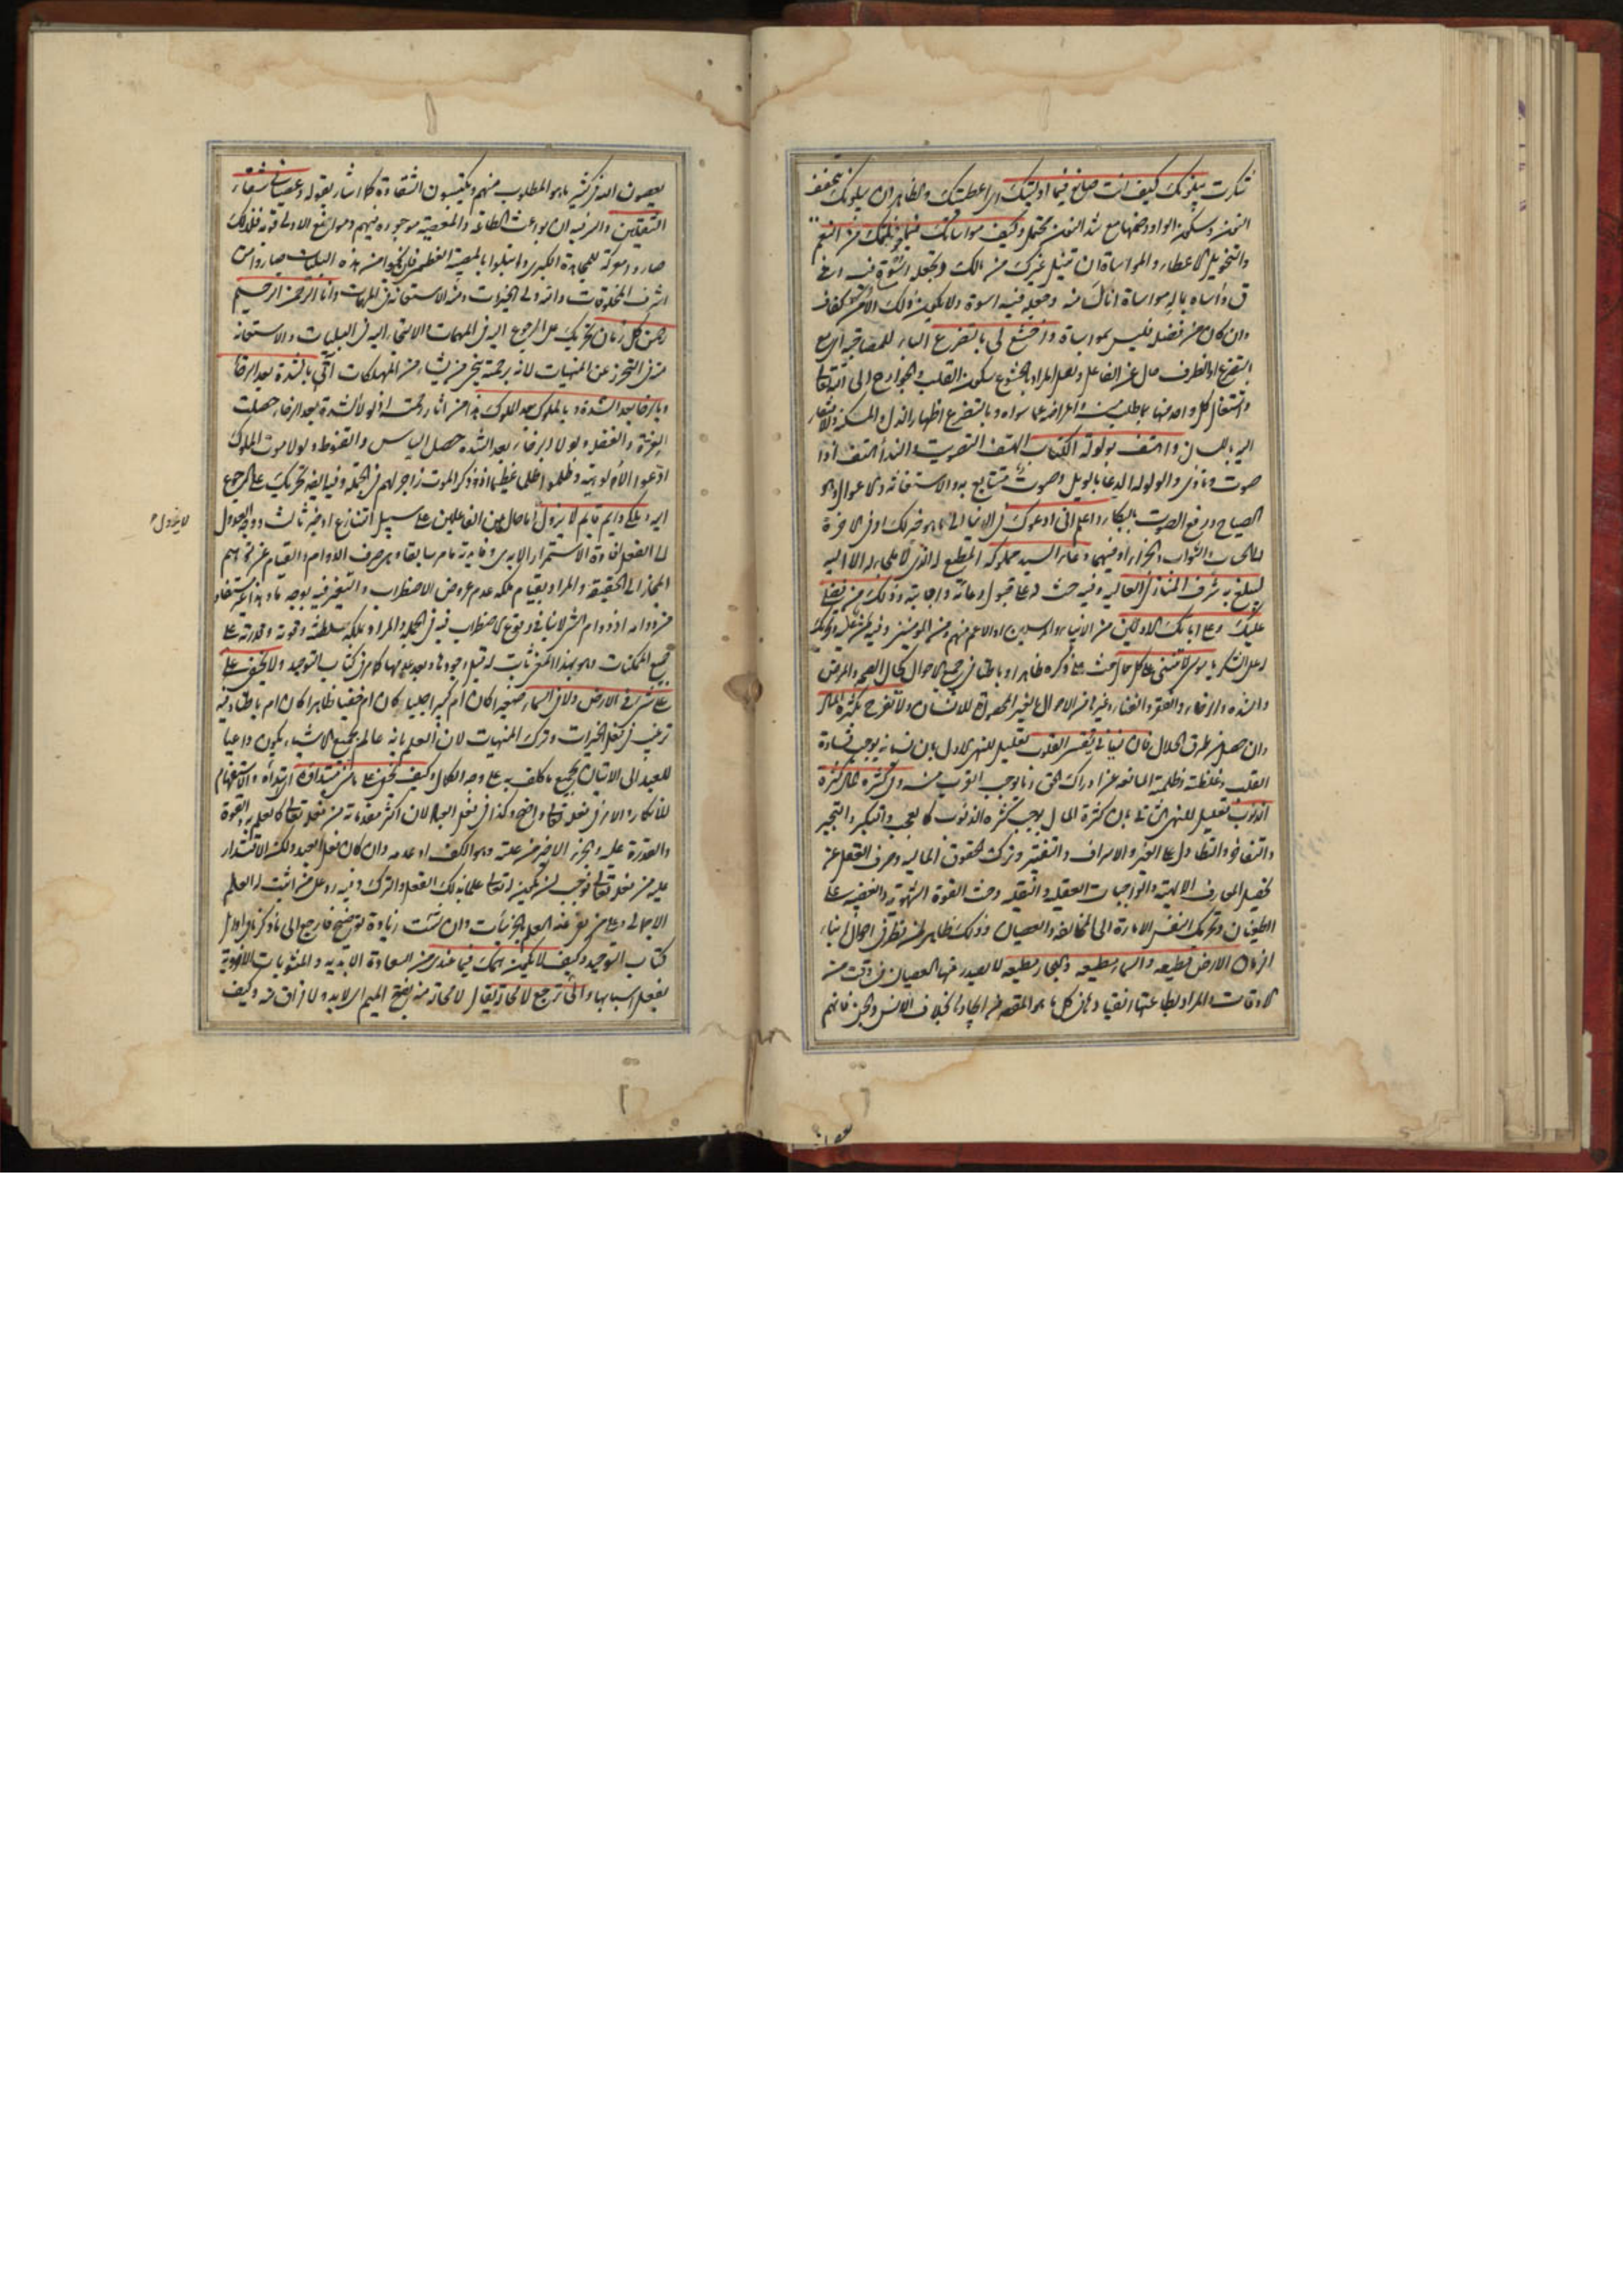 شكرت يبلونك كيف انت صانع فيما اوليتك اى اعطيتك والظاهر ان يبلونك بتخفيف
النون وسكون الواو وضمها مع شد النون محتمل وكيف مواساتك فيما خولتك من النعم
والتخويل الاعطاء والمواساة ان تنيل غيرك من مالك وتجعله اسوة فيه اى
ق وآساه بماله مواساة اناله منه وجعله فيه اسوة ولا يكون ذلك الا من كفاف
وان كان من فضل فليس بمواساة واخشع لى بالتضرع الباء للمصاحبة اى مع
التضرع او الظرف حال عن الفاعل ولعل المراد بالخشوع سكون القلب والجوارح الى الله تعالى
واشتغال كل واحد منها بما طلب منه واعراضه عما سواه وبالتضرع اظهار الذل والمسكنة والافتقار
اليه باللسان واهتف بولولة الكتاب الهتف التصويت والنداء هتف اذا
صوت ونادى والولولة الدعاء بالويل وصوت متتابع به والاستغاثة والاعوال وهو
الصياح ورفع الصوت بالبكاء واعلم انى ادعوك فى الدنيا الى ما هو خير لك او فى الاخرة
للحساب والثواب والجزاء او فيهما دعاء السيد مملوكه المطيع له الذى لا ملجأ له الا اليه
ليبلغ به شرف المنازل العالية وفيه حث له على قبول دعائه واجابته وذلك من فضلى
عليك وعلى ابائك الاولين من الانبياء والمرسلين او الاعم منهم ومن المؤمنين
له على الشكر يا موسى لا تنسنى على كل حال حث على ذكره ظاهرا وباطنا فى جميع الاحوال كحال الصحة والمرض
والشدة والرخاء والفقر والغناء وغيرها من الاحوال الغير المحصورة للانسان ولا تفرح بكثرة المال
وان حصل من طرق الحلال فان نسيانى يقسى القلوب تعليل للنهى الاول بان نسيانه يوجب قساوة
القلب وغلظته وظلمته المانعة عن ادراك الحق وما يوجب القرب منه ومع كثرة المال كثرة
الذنوب تعليل للنهى الثانى بان كثرة المال يوجب كثرة الذنوب كالعجب والتكبر والتجبر
والتفاخر والتطاول على الغير والاسراف والتقتير وترك الحقوق المالية وصرف العقل عن
تحصيل المعارف الالهية والواجبات العقلية والنقلية وحث القوة الشهوية والغضبية على
الطغيان وتحريك النفس الامارة الى المخالفة والعصيان وذلك ظاهر لمن نظر فى احوال ابناء
الزمان الارض مطيعة والسماء مطيعة والبحار مطيعة لا يصدر منها العصيان فى وقت من
الاوقات والمراد بطاعتها انقيادها فى كل ما هو المقصود من ايجادها بخلاف الانس والجن فانهم
يعصون الله فى كثير ما هو المطلوب منهم ويكتسبون الشقاوة كما اشار بقوله وعصيانى شقاء
الثقلين والسر فيه ان بواعث الطاعة والمعصية موجودة فيهم وموانع الاولى قوية فلذلك
صاروا معركة للمجاهدة الكبرى وابتلوا بالمصيبة العظمى فان نجوا من هذه البليات صاروا من
اشرف المخلوقات وانه ولى الخيرات ومنه الاستعانة فى المهمات وانا الرحمن الرحيم
رحمن كل زمان تحريك على الرجوع اليه فى المهمات والالتجاء اليه فى البليات والاستعانة
منه فى التحرز عن المنهيات لانه برحمته ينجى من يشاء من المهلكات آتى بالشدة بعد الرخاء
وبالرخاء بعد الشدة وبالملوك بعد الملوك هذا من اثار رحمته اذ لولا الشدة بعد الرخاء حصلت
الغرة والغفلة ولولا الرخاء بعد الشدة حصل الياس والقنوط ولولا موت الملوك
ادعوا الالوهية وظلموا ظلما عظيما اذ ذكر الموت زاجر لهم فى الجملة وفيه ايضا تحريك على الرجوع
اليه وملكى دائم قائم لا يزول اما حال عن الفاعلين على سبيل التنازع او خبر ثالث ووجه العدول
الى الفعل افادة الاستمرار الابدى وفائدته ما مر سابقا وهى صرف الدوام والقيام عن توهم
المجاز الى الحقيقة والمراد بقيام ملكه عدم عروض الاضطراب والتغير فيه بوجه ما وهذا غير مستفاد
من دوامه اذ دوام الشىء لا ينافى وقوع الاضطراب فيه فى الجملة والمراد بملكه سلطنته وقوته وقدرته على
جميع الممكنات وهو بهذا المعنى ثابت له قبل وجودها وبعد عدمها كما مر فى كتاب التوحيد ولا يخفى على
على شىء فى الارض ولا فى السماء صغيرا كان ام كبيرا جليا كان ام خفيا ظاهرا كان ام باطنا وفيه
ترغيب فى فعل الخيرات وترك المنهيات لان العلم بانه عالم بجميع الاشياء يكون داعيا
للعبد الى الاتيان بجميع ما كلف به على وجه الكمال وكيف يخفى على ما منى مبتداؤه ابتداؤه والاستفهام
للانكار والامر فى فعله تعالى واضح وكذا فى فعل العبد لان اكثر مقدماته من فعله تعالى كالعلم به والقوة
والقدرة عليه والجزء الاخير من علته وهو الكف او عدمه وان كان فعل العبد ولكن الاقتدار
عليه من فعله تعالى فوجب ان يكون له تعالى علما بذلك الفعل والترك وفيه رد على من اثبت له العلم
الاجمالى وعلى من نفى عنه العلم بالجزئيات وان شئت زيادة توضيح فارجع الى ما ذكرنا فى اوائل
كتاب التوحيد وكيف لا يكون همك فيما عندى من السعادة الابدية والمثوبات الاخروية
بفعل اسبابها والى ترجع لا محالة يقال لا محالة منه بفتح الميم اى لا بد ولا فراق منه وكيف
لا يزول